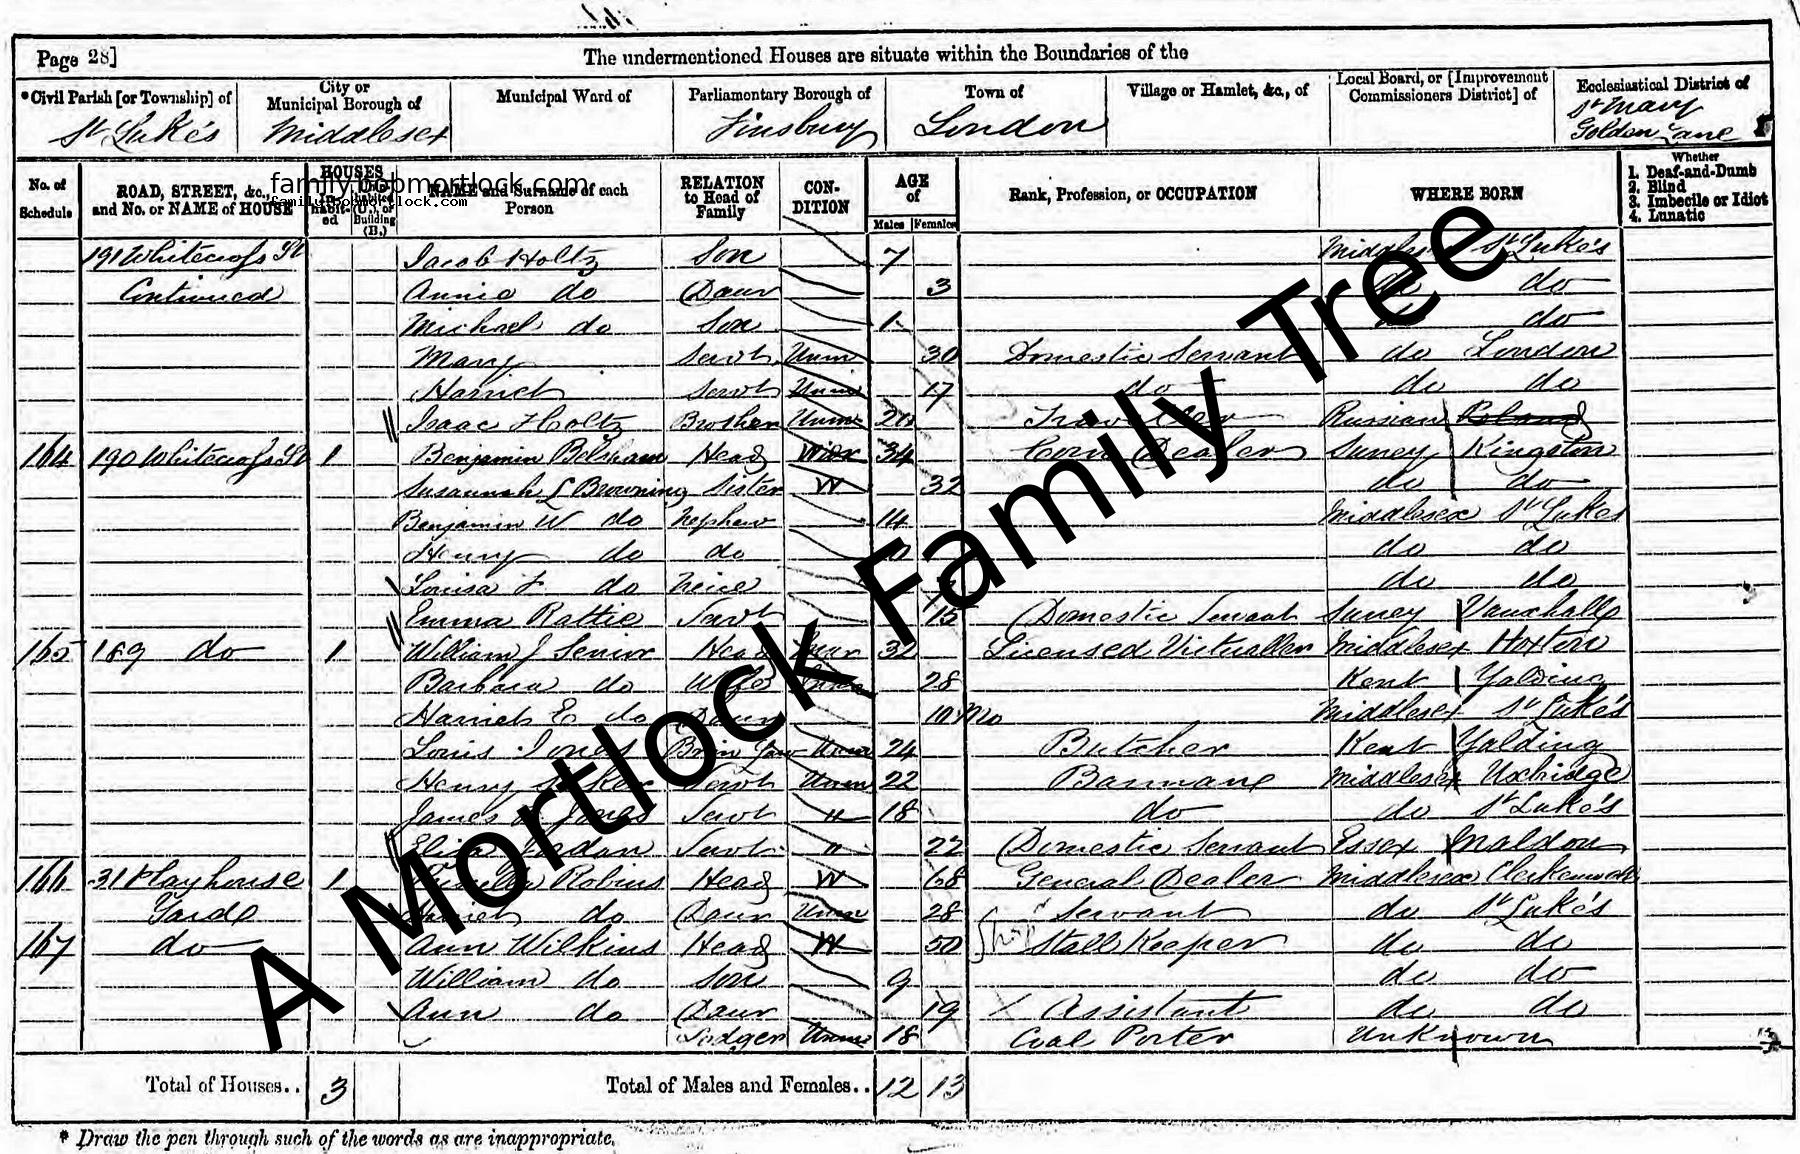 Page 28]
The undermentioned Houses are situate within the Boundaries of the
*Civil Parish [or Township] of City or Municipal Borough of Municipal Ward of Parliamentary Borough of Town of Village or Hamlet, &c., of Local Board, or [Improvement Commissioners District] of Ecclesiastical District of
St Luke's Middlesex Finsbury London St Mary Golden Lane
No. of Schedule ROAD, STREET, &c., and No. or NAME of HOUSE HOUSES NAME and Surname of each Person RELATION to Head of Family CON-DITION AGE of Males Females Rank, Profession, or OCCUPATION WHERE BORN Whether 1. Deaf-and-Dumb 2. Blind 3. Imbecile or Idiot 4. Lunatic
family.bobmortlock.com
family.bobmortlock.com
191 Whitecross St Jacob Holtz Son 7 Middlesex St Luke's
Continued Annie do Daur 3 do do
Michael do Son 1 do
Mary Servt Unm 30 Domestic Servant do London
Harriet Servt Unm 17 do do do
Isaac Holtz Brother Unm Russian Poland
164 190 Whitecross St 1 Benjamin Belsham Head Widr 34 Corn Dealer Surrey Kingston
Susannah L Browning Sister W 32 do do
Benjamin W do Nephew 14 Middlesex St Lukes
Henry do do do do
Louisa F do Neice do do
Emma Rattie Servt 15 Domestic Servant Surrey Vauxhall
165 189 do 1 William J Senior Head Mar 32 Licensed Victualler Middlesex Hoxton
Barbara do Wife 28 Kent Yalding
Harriet E do Daur 10 Mo Middlesex St Luke's
Louis Jones Br in Law Unm 24 Butcher Kent Yalding
Henry Servt Unm 22 Barmane Middlesex Uxbridge
James Jones Servt " 18 do do St Luke's
Eliza Jordan Servt " 22 Domestic Servant Essex Maldon
166 31 Playhouse 1 Robins Head W 68 General Dealer Middlesex Clerkenwell
Yarde Harriet do Daur Unm 28 Servant do St Luke's
167 do Ann Wilkins Head W 50 Shop Stall Keeper do do
William do Son 9 do do
Ann do Daur 19 Assistant do do
Lodger Unm 18 Coal Porter Unknown
Total of Houses.. 3 Total of Males and Females.. 12 13
* Draw the pen through such of the words as are inappropriate.
A Mortlock Family Tree